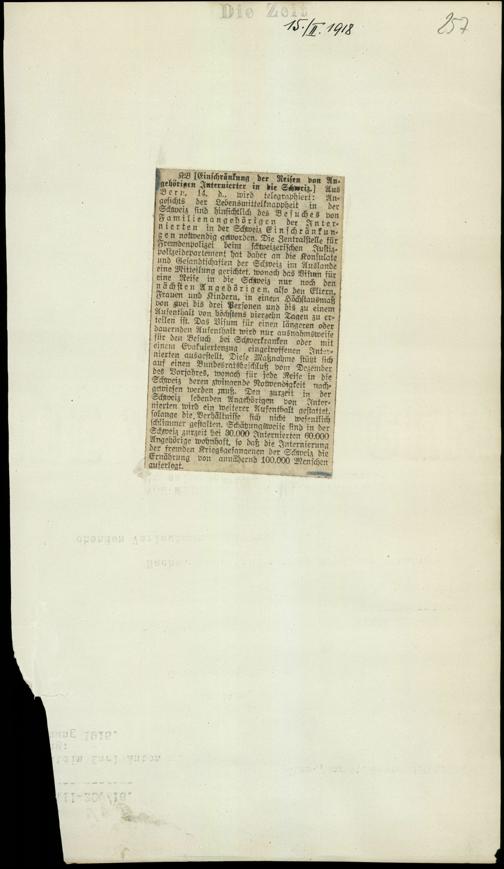 Die Zeit
15./II. 1918
257
KB [Einschränkung der Reisen von An-
gehörigen Internierter in die Schweiz.] Aus
Bern, 14. d., wird telegraphiert: An-
gesichts der Lebensmittelknappheit in der
Schweiz sind hinsichtlich des Besuches von
Familienangehörigen der Inter-
nierten in der Schweiz Einschränkun-
gen notwendig geworden. Die Zentralstelle für
Fremdenpolizei beim schweizerischen Justiz-
polizeidepartement hat daher an die Konsulate
und Gesandtschaften der Schweiz im Auslande
eine Mitteilung gerichtet, wonach das Visum für
eine Reise in die Schweiz nur noch den
nächsten Angehörigen, also den Eltern,
Frauen und Kindern, in einem Höchstausmaß
von zwei bis drei Personen und bis zu einem
Aufenthalt von höchstens vierzehn Tagen zu er-
teilen ist. Das Visum für einen längeren oder
dauernden Aufenthalt wird nur ausnahmsweise
für den Besuch bei Schwerkranken oder mit
einem Evakuiertenzug eingetroffenen Inter-
nierten ausgestellt. Diese Maßnahme stützt sich
auf einen Bundesratsbeschluß vom Dezember
des Vorjahres, wonach für jede Reise in die
Schweiz deren zwingende Notwendigkeit nach-
gewiesen werden muß. Den zurzeit in der
Schweiz lebenden Angehörigen von Inter-
nierten wird ein weiterer Aufenthalt gestattet,
solange die Verhältnisse sich nicht wesentlich
schlimmer gestalten. Schätzungsweise sind in der
Schweiz zurzeit bei 30.000 Internierten 60.000
Angehörige wohnhaft, so daß die Internierung
der fremden Kriegsgefangenen der Schweiz die
Ernährung von annähernd 100.000 Menschen
auferlegt.